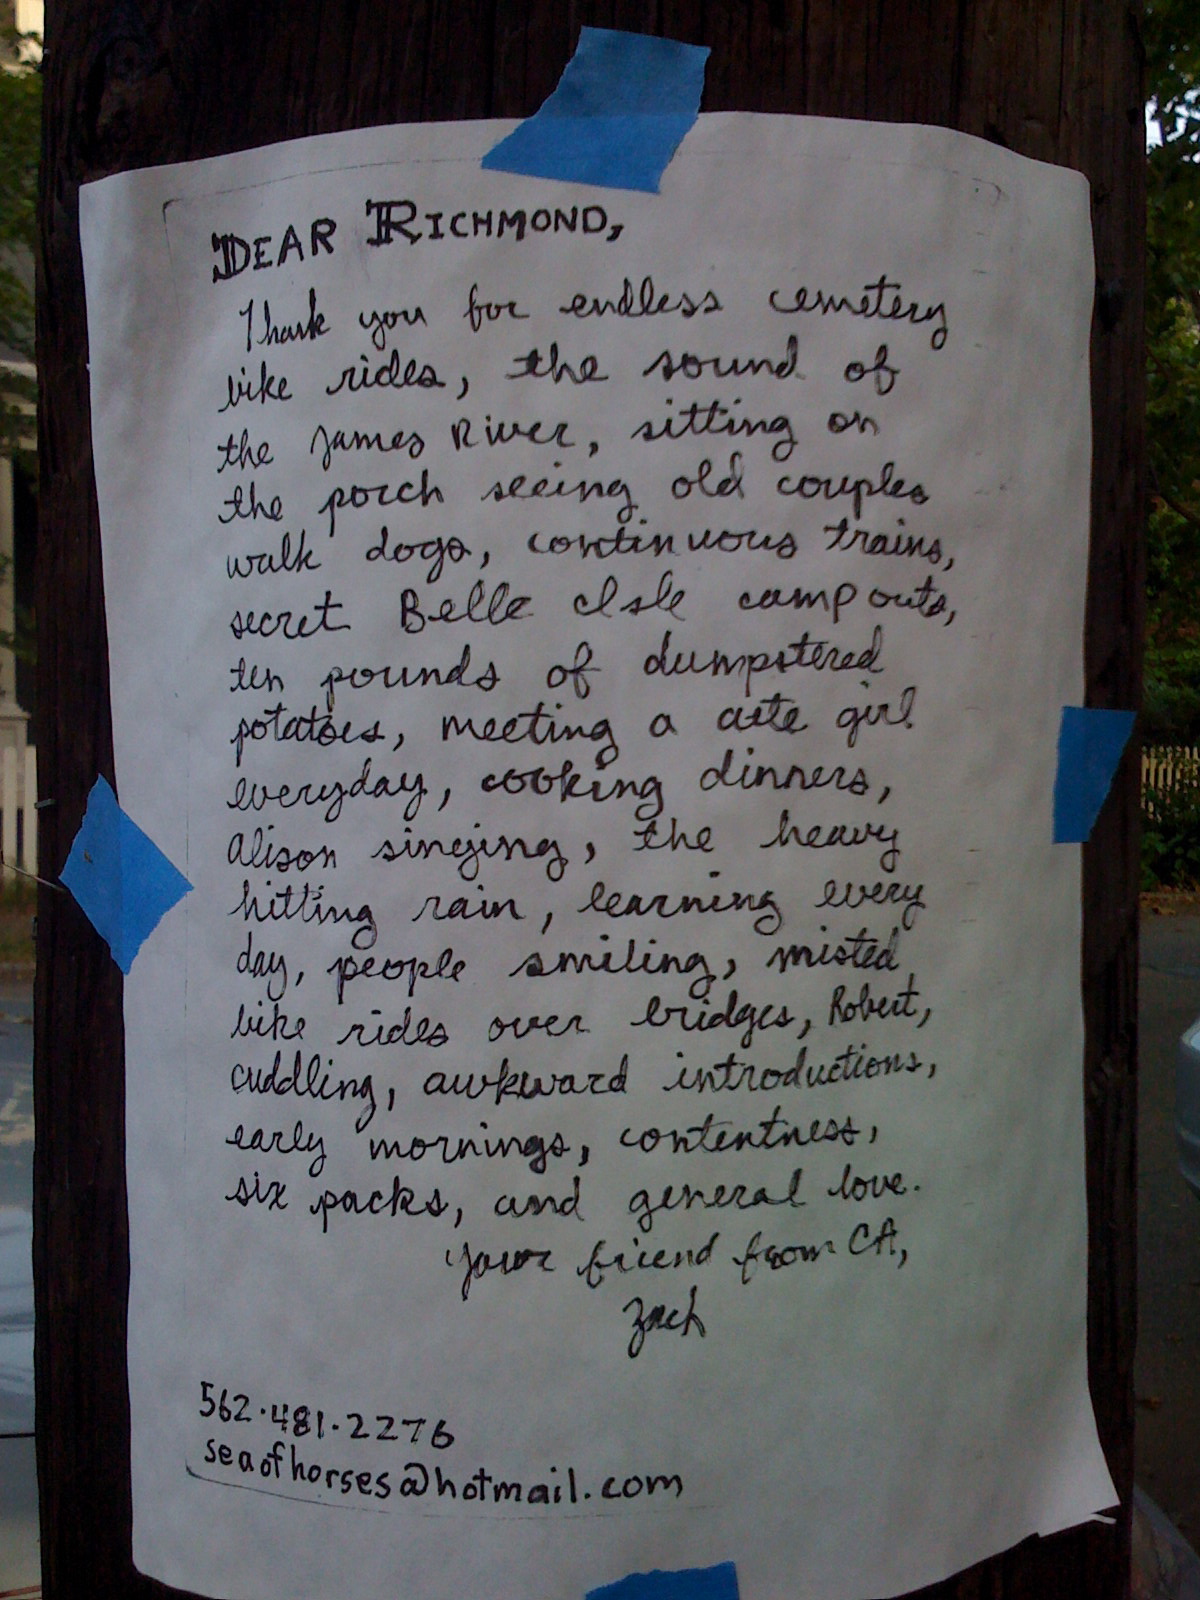 DEAR RICHMOND,
Thank you for endless cemetery
bike rides, the sound of
the James River, sitting on
the porch seeing old couples
walk dogs, continuous trains,
secret Belle Isle camp outs,
ten pounds of dumpstered
potatoes, meeting a cute girl
everyday, cooking dinners,
Alison singing, the heavy
hitting rain, learning every
day, people smiling, misted
bike rides over bridges, Robert,
cuddling, awkward introductions,
early mornings, contentness,
six packs, and general love.
Your friend from CA,
Zach
562.481.2276
seaofhorses@hotmail.com